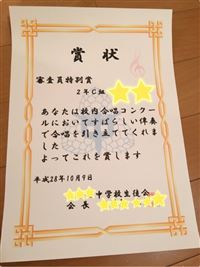 賞状
審査員特別賞
2年C組
あなたは校内合唱コンクー
ルにおいてすばらしい伴奏
で合唱を引き立ててくれま
した
よってこれを賞します
平成28年10月9日
中学校生徒会
会長